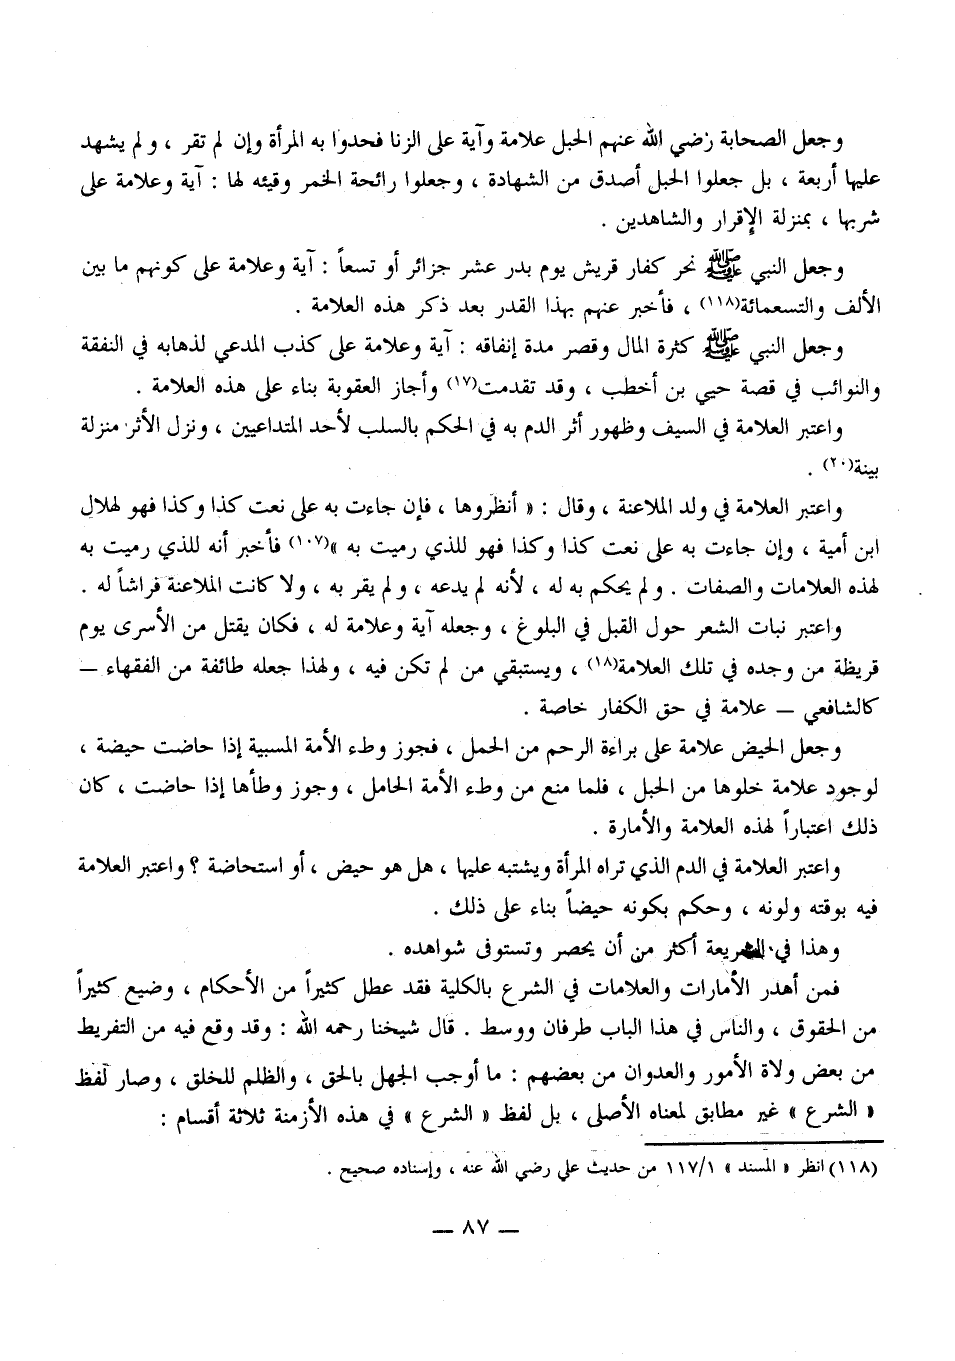 وجعل الصحابة رضي الله عنهم الحبل علامة وآية على الزنا فحدوا به المرأة وإن لم تقر ، ولم يشهد
عليها أربعة ، بل جعلوا الحبل أصدق من الشهادة ، وجعلوا رائحة الخمر وقيئه لها : آية وعلامة على
شربها ، بمنزلة الإقرار والشاهدين .
وجعل النبي ﷺ نحر كفار قريش يوم بدر عشر جزائر أو تسعاً : آية وعلامة على كونهم ما بين
الألف والتسعمائة(١١٨) ، فأخبر عنهم بهذا القدر بعد ذكر هذه العلامة .
وجعل النبي ﷺ كثرة المال وقصر مدة إنفاقه : آية وعلامة على كذب المدعي لذهابه في النفقة
والنوائب في قصة حيي بن أخطب ، وقد تقدمت(١٧) وأجاز العقوبة بناء على هذه العلامة .
واعتبر العلامة في السيف وظهور أثر الدم به في الحكم بالسلب لأحد المتداعيين ، ونزل الأثر منزلة
بينة(٢٠) .
واعتبر العلامة في ولد الملاعنة ، وقال : « أنظروها ، فإن جاءت به على نعت كذا وكذا فهو لهلال
ابن أمية ، وإن جاءت به على نعت كذا وكذا فهو للذي رميت به »(١٠٧) فأخبر أنه للذي رميت به
لهذه العلامات والصفات . ولم يحكم به له ، لأنه لم يدعه ، ولم يقر به ، ولا كانت الملاعنة فراشاً له .
واعتبر نبات الشعر حول القبل في البلوغ ، وجعله آية وعلامة له ، فكان يقتل من الأسرى يوم
قريظة من وجده في تلك العلامة(١٨) ، ويستبقي من لم تكن فيه ، ولهذا جعله طائفة من الفقهاء —
كالشافعي — علامة في حق الكفار خاصة .
وجعل الحيض علامة على براءة الرحم من الحمل ، فجوز وطء الأمة المسبية إذا حاضت حيضة ،
لوجود علامة خلوها من الحبل ، فلما منع من وطء الأمة الحامل ، وجوز وطأها إذا حاضت ، كان
ذلك اعتباراً لهذه العلامة والأمارة .
واعتبر العلامة في الدم الذي تراه المرأة ويشتبه عليها ، هل هو حيض ، أو استحاضة ؟ واعتبر العلامة
فيه بوقته ولونه ، وحكم بكونه حيضاً بناء على ذلك .
وهذا في الشريعة أكثر من أن يحصر وتستوفى شواهده .
فمن أهدر الأمارات والعلامات في الشرع بالكلية فقد عطل كثيراً من الأحكام ، وضيع كثيراً
من الحقوق ، والناس في هذا الباب طرفان ووسط . قال شيخنا رحمه الله : وقد وقع فيه من التفريط
من بعض ولاة الأمور والعدوان من بعضهم : ما أوجب الجهل بالحق ، والظلم للخلق ، وصار لفظ
« الشرع » غير مطابق لمعناه الأصلي ، بل لفظ « الشرع » في هذه الأزمنة ثلاثة أقسام :
(١١٨) انظر « المسند » ١١٧/١ من حديث علي رضي الله عنه ، وإسناده صحيح .
— ٨٧ —